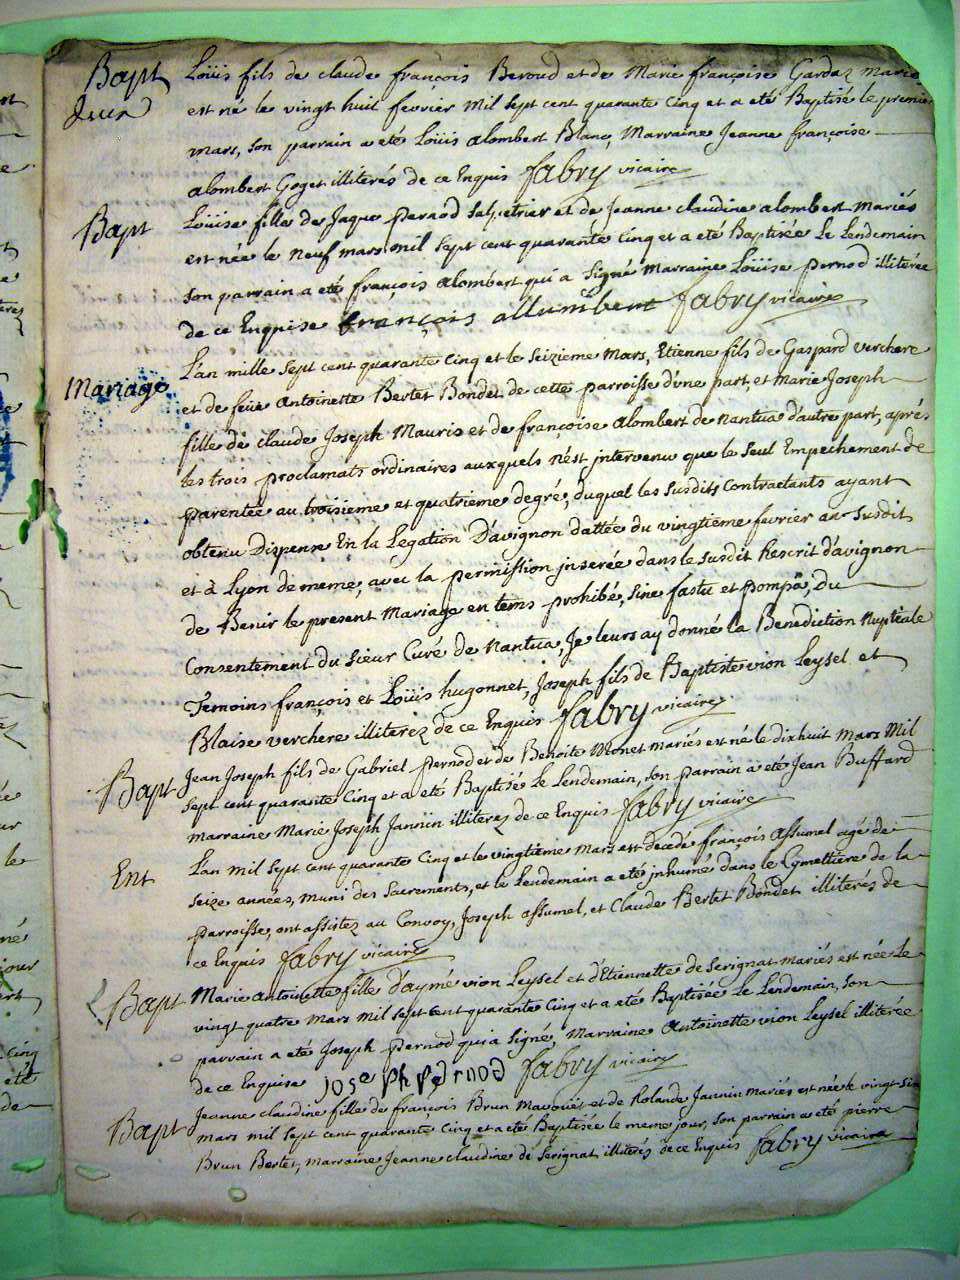 Bapt Loüis fils de claude françois Beroud et de Marie françoise Gardaz mariés
est né le vingt huit fevrier Mil sept cent quarante Cinq et a eté Baptisé le premier
mars, son parrain a eté Loüis alombert Blanc, Marraine Jeanne françoise
alombert Goget illiterés de ce Enquis fabry vicaire
Bapt Loüise fille de Jaque Pernod Salpetrier et de Jeanne claudine alombert Mariés
est née le neuf mars mil sept cent quarante Cinq et a eté Baptisée Le Lendemain
son parrain a eté françois alombert qui a signé Marraine Loüise pernod illiterée
de ce Enquise françois allumbert fabry vicaire
Mariage L'an mille sept cent quarante Cinq et le seizieme Mars, Etienne fils de Gaspard verchere
et de feüe Antoinette Bertet Bondet de cette parroisse d'une part, et Marie Joseph
fille de claude Joseph Mauris et de françoise alombert de nantua d'autre part, aprés
les trois proclamats ordinaires auxquels n'est intervenu que le seul Empechement de
parentée au troisieme et quatrieme degré, duquel les susdits Contractants ayant
obtenu Dispense En la Legation D'avignon dattée du vingtieme fevrier an susdit
et à Lyon de meme, avec la permission inserée dans le susdit Rescrit d'avignon
de Benir le present Mariage en tems prohibé, sine fastu et pompâ, Du
Consentement du sieur Curé de nantua, Je leurs ay donné la Benediction Nuptiale
Temoins françois et Loüis hugonnet, Joseph fils de Baptiste vion Leysel et
Blaise verchere illiterez de ce Enquis fabry vicaire
Bapt Jean Joseph fils de Gabriel pernod et de Benoite Monet mariés est né le dixhuit Mars Mil
sept cent quarante Cinq et a eté Baptisé Le Lendemain, son parrain a eté Jean Buffard
marraine Marie Joseph Jannin illiterez de ce Enquis fabry vicaire
Ent L'an mil sept cent quarante Cinq et le vingtieme Mars est decedé françois Assumel agé de
seize années, muni des Sacrements, et le Lendemain a eté inhumé dans le Cymettiere de la
parroisse, ont assistez au Convoy, Joseph assumel, et Claude Bertet Bondet illiterés de
ce Enquis fabry vicaire
Bapt Marie Antoinette fille d'aymé vion Leysel et d'Etiennette de Serignat mariés est née Le
vingt quatre Mars Mil sept cent quarante Cinq et a eté Baptisée Le Lendemain, son
parrain a eté Joseph pernod qui a signé, Marraine Antoinette vion Leysel illiterée
de ce Enquise joseph pernod fabry vicaire
Bapt Jeanne claudine fille de françois Brun et de Rolande Jannin Mariés est née le vingt six
mars mil sept cent quarante Cinq et a eté Baptisée le meme jour, son parrain a eté pierre
Brun Bertet, marraine Jeanne claudine de Serignat illiterés de ce Enquis fabry vicaire